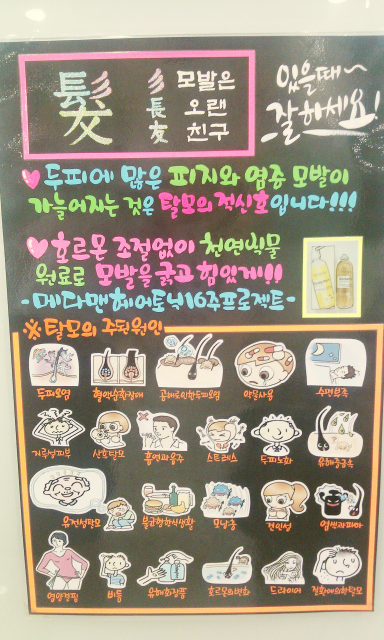 髮
彡 모발은
長 오랜
友 친구
있을때~
잘하세요!
두피에 많은 피지와 염증 모발이
가늘어지는 것은 탈모의 적신호입니다!!!
호르몬 조절없이 천연식물
원료로 모발을 굵고 힘있게!!
-메다맨헤어토닉16주프로젝트-
※탈모의 주된원인
두피오염 혈액순환장애 공해로인한두피오염 약물사용 수면부족
지루성피부 산후탈모 흡연과음주 스트레스 두피노화 유해중금속
유전성탈모 불균형한식생활 모낭충 건선성 염색과파마
영양결핍 비듬 유해화장품 호르몬의변화 드라이어 질환에의한탈모